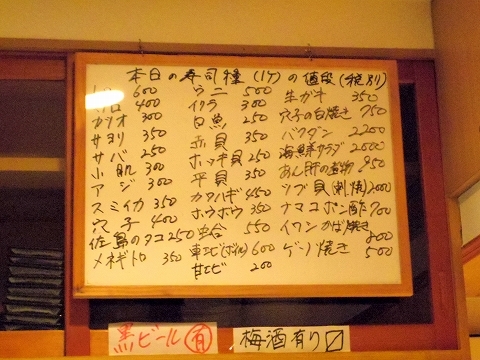 本日の寿司種(1ケ)の値段(税別)
600
トロ 400
カツオ 300
サヨリ 350
サバ 250
小肌 300
アジ 300
スミイカ 350
穴子 400
佐島のタコ 250
メネギトロ 350
ウニ 500
イクラ 300
白魚 250
赤貝 350
ホッキ貝 250
平貝 350
カワハギ 450
ホウボウ 350
550
車エビ(ボイル) 600
甘エビ 200
生ガキ 350
穴子の白焼き 750
バクダン 2200
海鮮サラダ 2000
あん肝の 850
ツブ貝(刺・焼) 2000
ナマコポン酢 700
イワシかば焼き 800
ゲソ焼き 500
黒ビール 有
梅酒有り〼